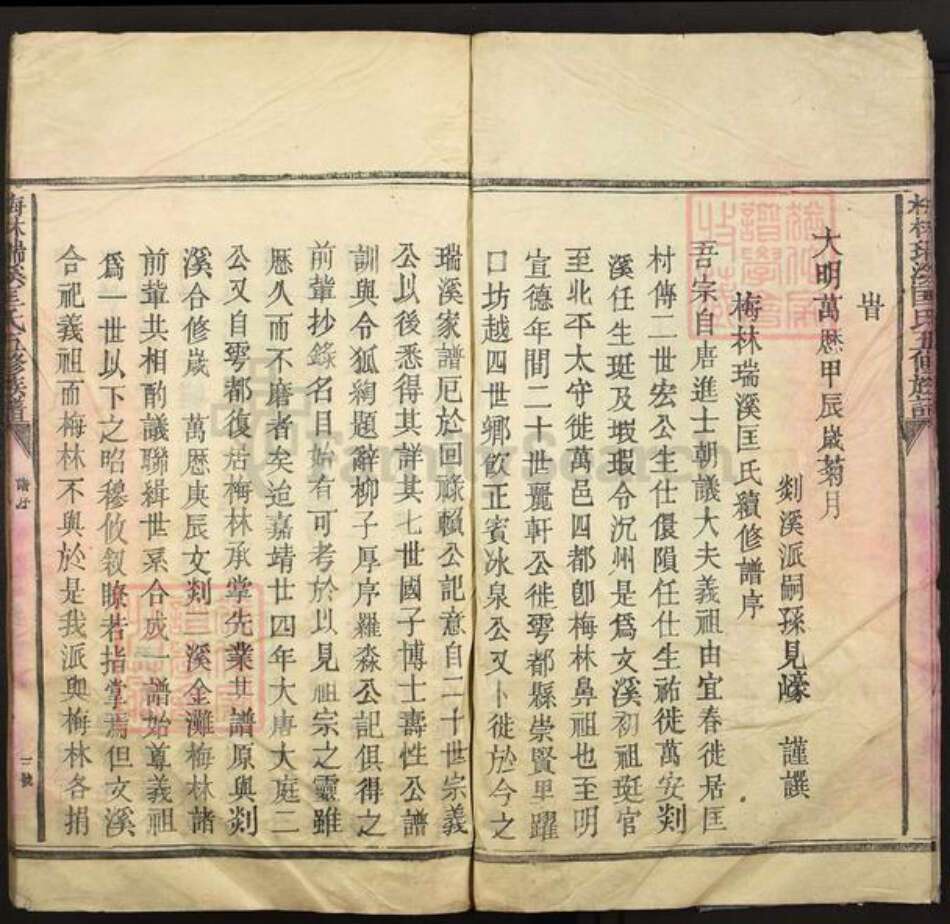 旹
大明萬厯甲辰歲菊月
剡溪派嗣孫見㠙 謹譔
梅林瑞溪匡氏續修譜序
吾宗自唐進士朝議大夫義祖由宜春徙居匡
村傳二世宏公生仕儇隕任仕生祐徙萬安剡
溪任生珽及瑕瑕令沉州是爲文溪初祖珽官
至北平太守徙萬邑四都卽梅林鼻祖也至明
宣德年間二十世麗軒公徙雩都縣崇賢里躍
口坊越四世鄉飲正賓冰泉公又卜徙於今之
瑞溪家譜厄於回祿賴公記意自二十世宗義
公以後悉得其詳其七世國子博士壽性公譜
訓與令狐綯題辭柳子厚序羅淼公記俱得之
前輩抄錄名目始有可考於以見祖宗之靈雖
厯久而不磨者矣迨嘉靖廿四年大唐大庭二
公又自雩都復居梅林承掌先業其譜原與剡
溪合修歲 萬厯庚辰文剡二溪金灘梅林諸
前輩共相酌議聯緝世系合成一譜始尊義祖
爲一世以下之昭穆攸敘瞭若指掌焉但文溪
合祀義祖而梅林不與於是我派與梅林各捐
梅林瑞溪匡氏五修族譜
譜序
二號
FamilySearch